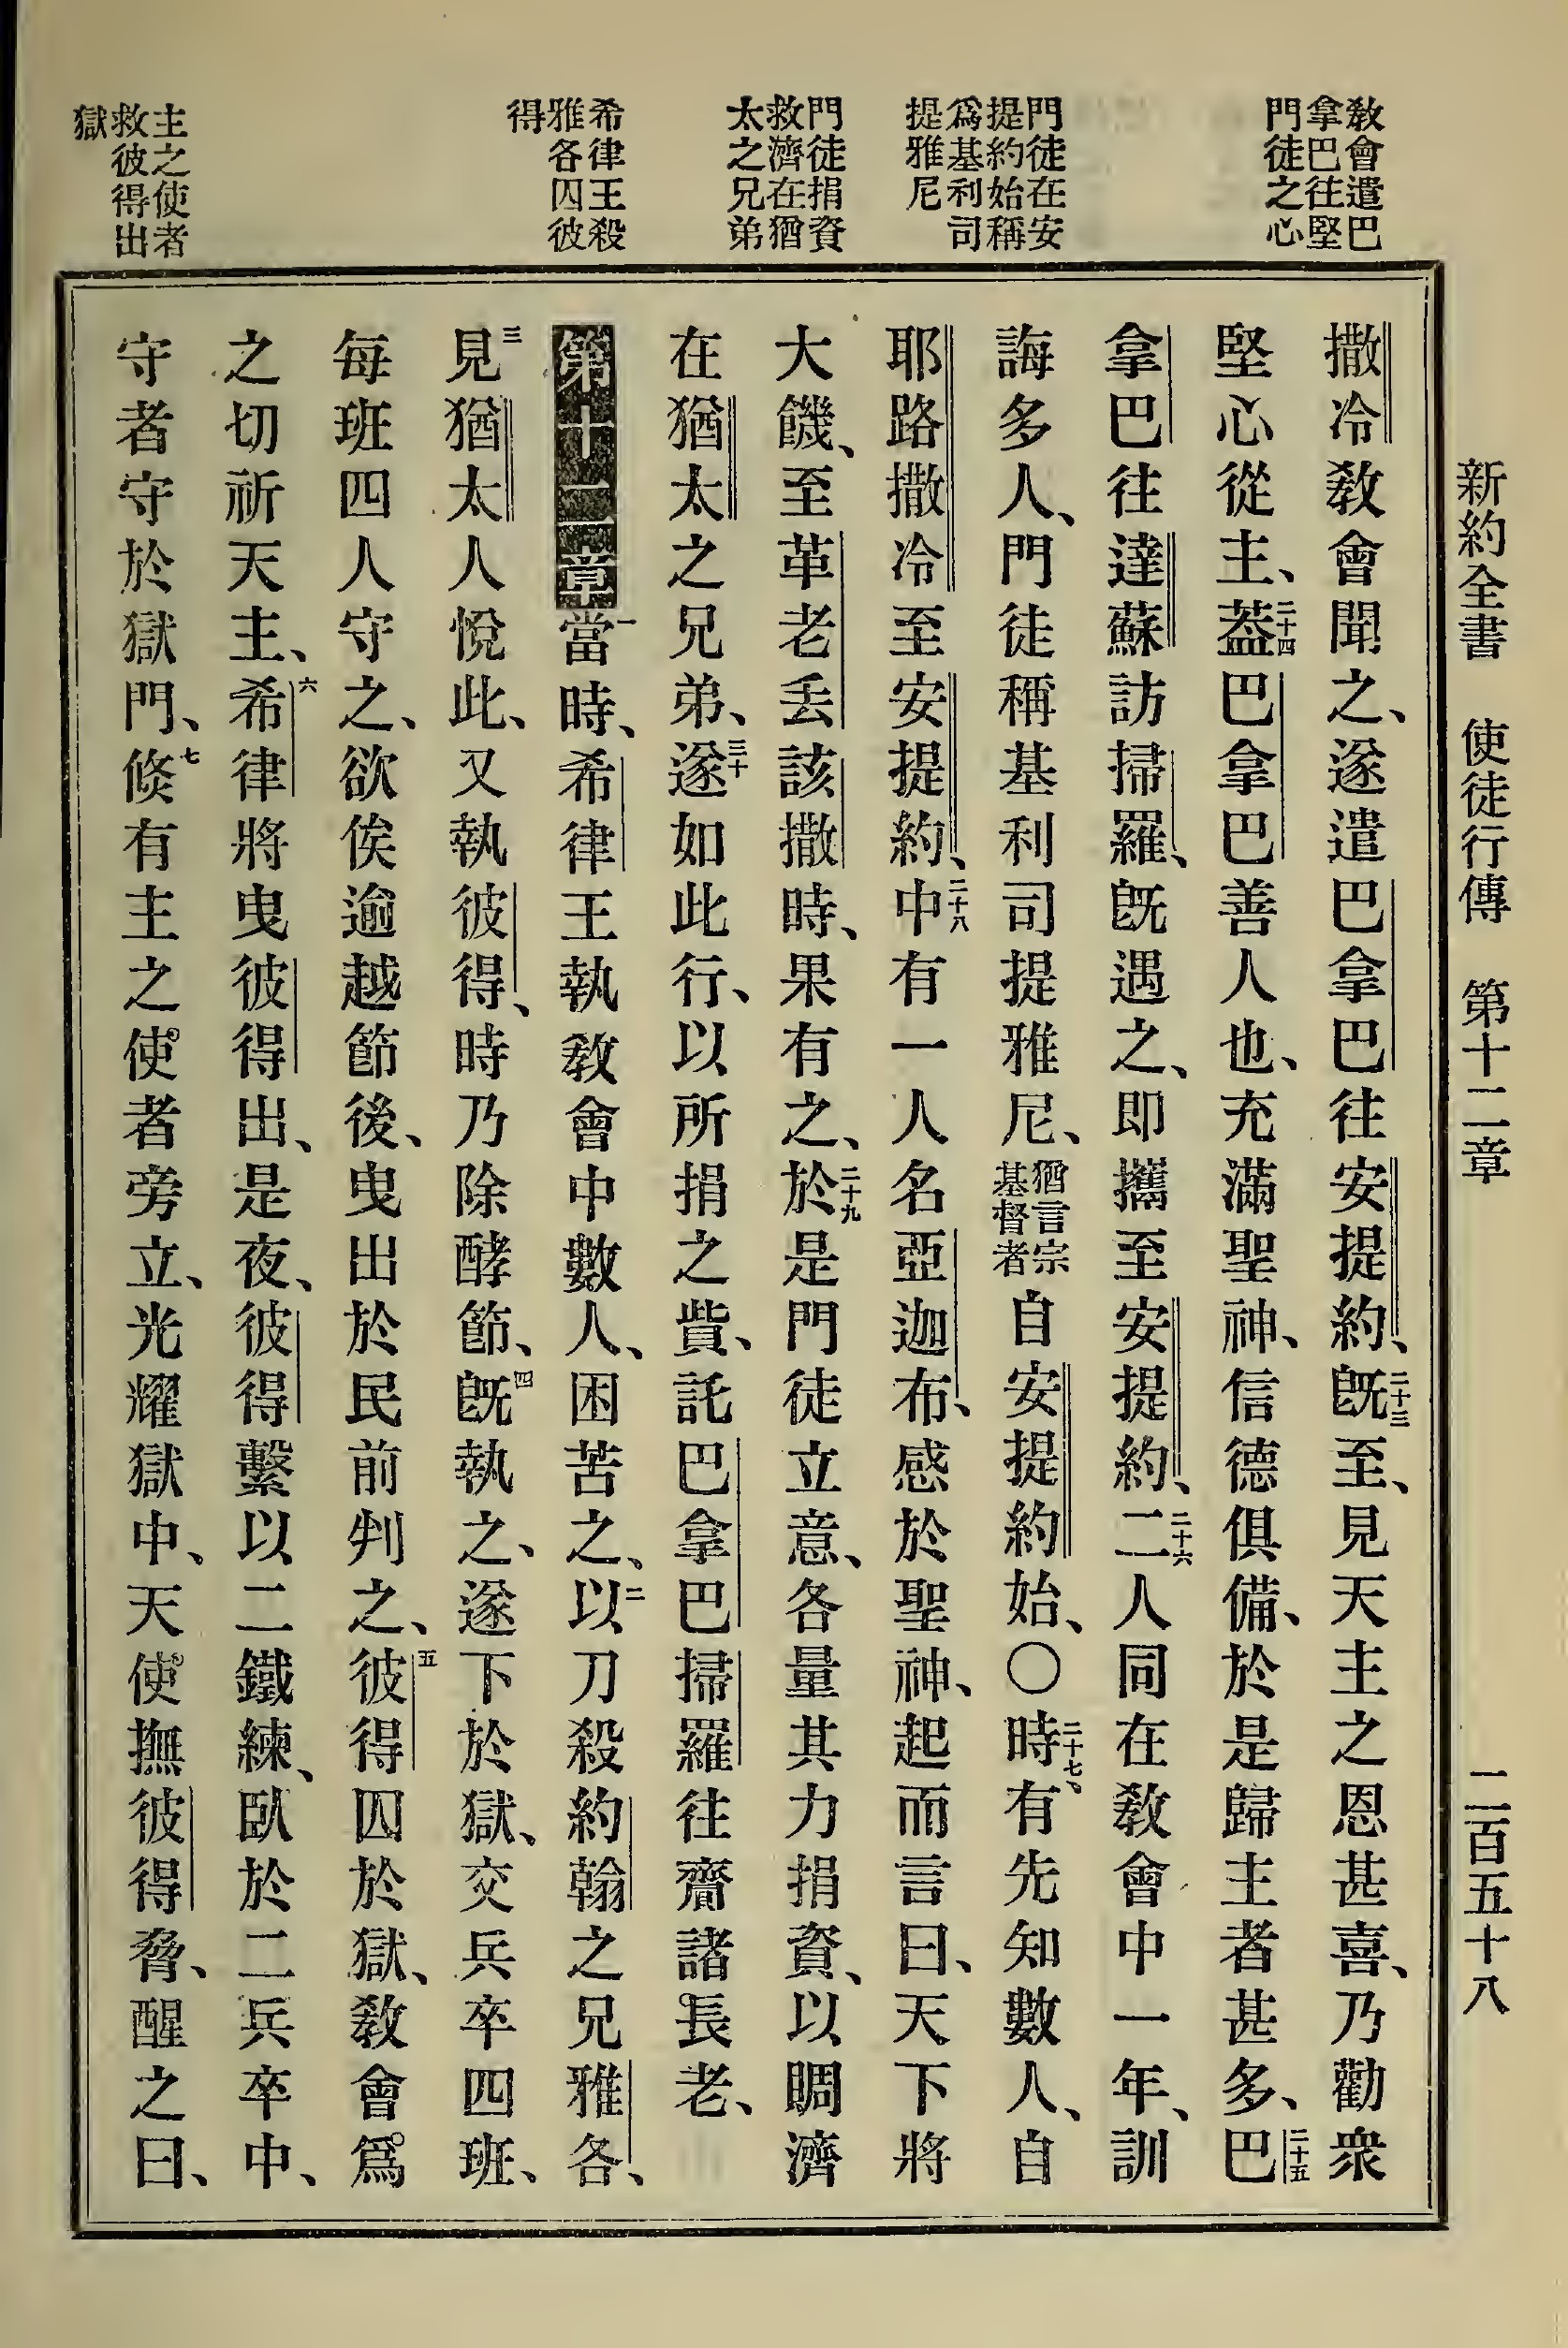 新約全書 使徒行傳 第十二章 二百五十八
教會遣巴
拿巴往堅
門徒之心
門徒在安
提約始稱
爲基利司
提雅尼
門徒捐資
救濟在猶
太之兄弟
希律王殺
雅各囚彼
得
主之使者
救彼得出
獄
撒冷教會聞之、遂遣巴拿巴往安提約、二十三既至、見天主之恩甚喜、乃勸衆
堅心從主、二十四蓋巴拿巴善人也、充滿聖神、信德俱備、於是歸主者甚多、二十五巴
拿巴往達蘇訪掃羅、既遇之、即攜至安提約、二十六二人同在教會中一年、訓
誨多人、門徒稱基利司提雅尼、猶言宗基督者自安提約始、〇二十七時、有先知數人、自
耶路撒冷至安提約、二十八中有一人名亞迦布、感於聖神、起而言曰、天下將
大饑、至革老丢該撒時、果有之、二十九於是門徒立意、各量其力捐資、以賙濟
在猶太之兄弟、三十遂如此行、以所捐之貲、託巴拿巴掃羅往齎諸長老、
第十二章一當時、希律王執教會中數人、困苦之、二以刀殺約翰之兄雅各、
三見猶太人悅此、又執彼得、時乃除酵節、四既執之、遂下於獄、交兵卒四班、
每班四人守之、欲俟逾越節後、曳出於民前判之、五彼得囚於獄、教會爲
之切祈天主、六希律將曳彼得出、是夜、彼得繫以二鐵練、臥於二兵卒中、
守者守於獄門、七倐有主之使者旁立、光耀獄中、天使撫彼得脅、醒之曰、